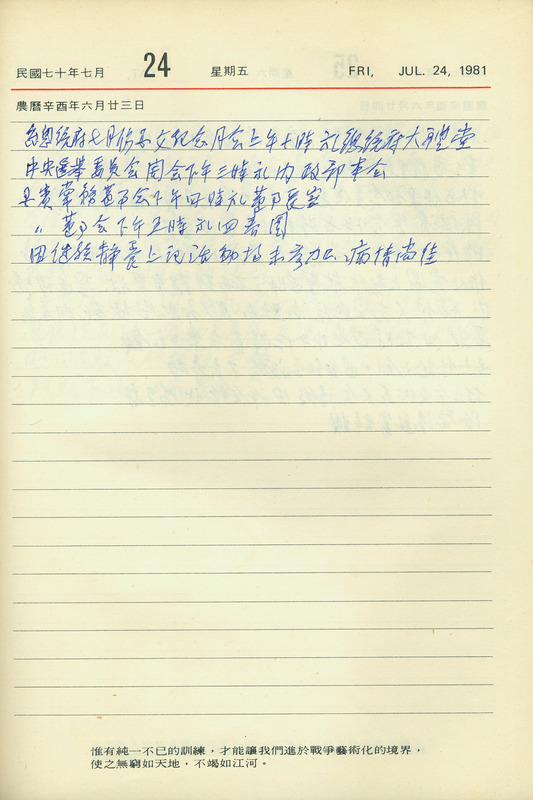 民國七十年七月 24 星期五 FRI, JUL. 24, 1981
農曆辛酉年六月廿三日
總統府七月份 紀念月會上午十時在總統府大禮堂
中央選舉委員會 會下午三時在內政部 會
常務董事會下午四時在董事長室
〃 董事會下午五時在四春園
因 續靜養上 活動均未參加 病情尚佳
惟有純一不已的訓練，才能讓我們進於戰爭藝術化的境界，
使之無窮如天地，不竭如江河。